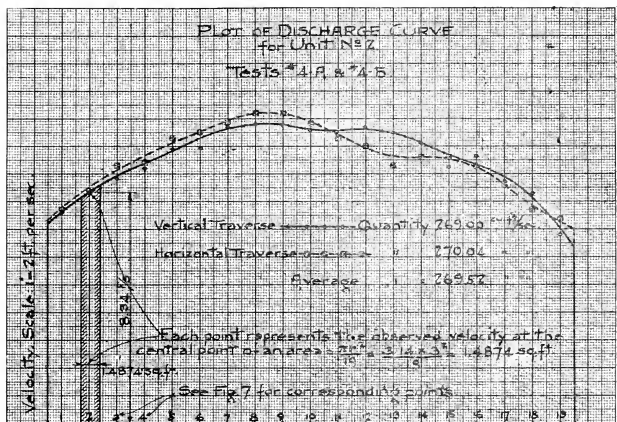 PLOT OF DISCHARGE CURVE
for Unit No 2
Tests #4-A & #4-B
Velocity. Scale: 1"=2 ft. per sec.
Vertical Traverse Quantity 269.00
Horizontal Traverse " 270.04 " "
Average " = 269.52 " "
8.34 '/s
Each point represents the observed velocity at the
central point of an area = πr²/19 = 3.14 × 3²/19 = 1.4874 sq.ft
1.4874 sq.ft.
See Fig. 7 for corresponding points
2 3 4 5 6 7 8 9 10 11 12 13 14 15 16 17 18 19